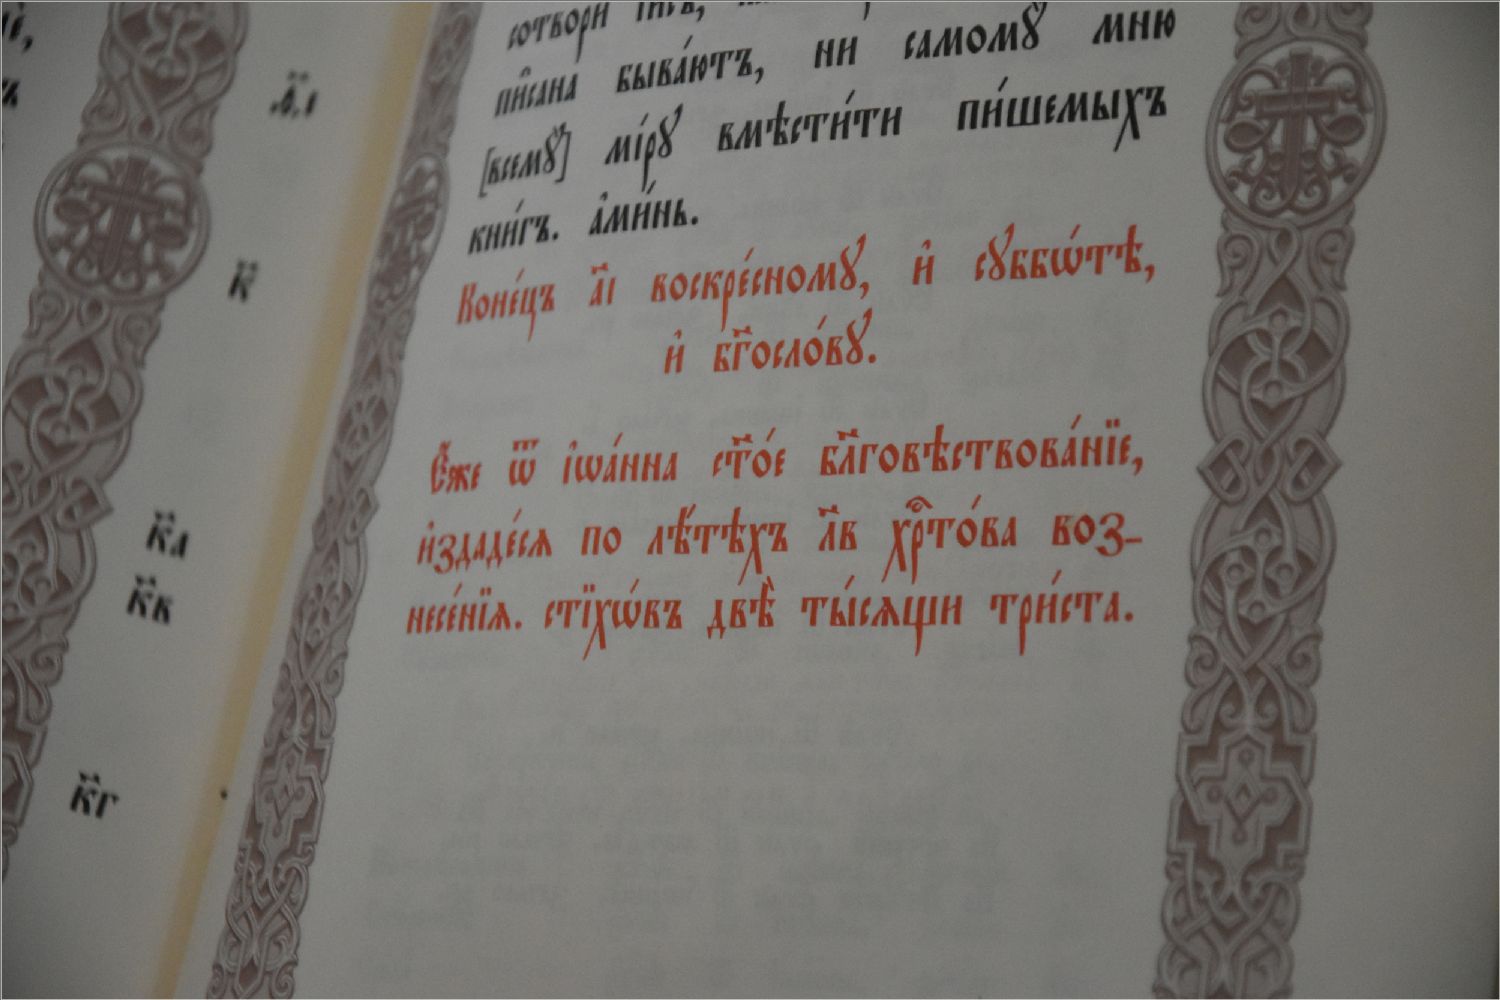 сотвори́
пи̑сана быва́ютъ, ни самомꙋ̀ мню
[всемꙋ̀] мі́рꙋ вмѣсти́ти пи́шемыхъ
кни́гъ. а҆ми́нь.
Коне́цъ а҃і воскре́сномꙋ, и҆ сꙋббѡ́тѣ,
и҆ бг҃осло́вꙋ.
Є҆́же ѿ і҆ѡа́нна ст҃о́е бл҃говѣствова́нїе,
и҆здаде́сѧ по лѣ́тѣхъ л҃в хрⷭ҇то́ва воз-
несе́нїѧ. стїхѡ́въ двѣ̀ ты́сѧщи три́ста.
к҃
к҃а
к҃в
к҃г